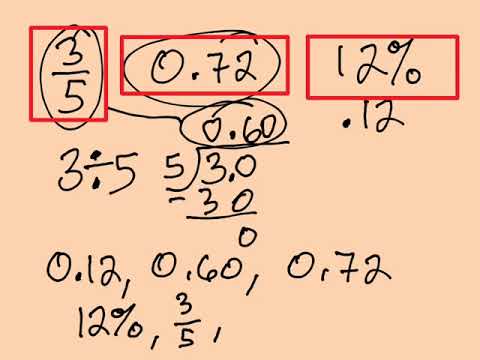 3/5 0.72 12%
0.60 .12
3÷5 5)3.0
- 30
0
0.12, 0.60, 0.72
12%, 3/5,